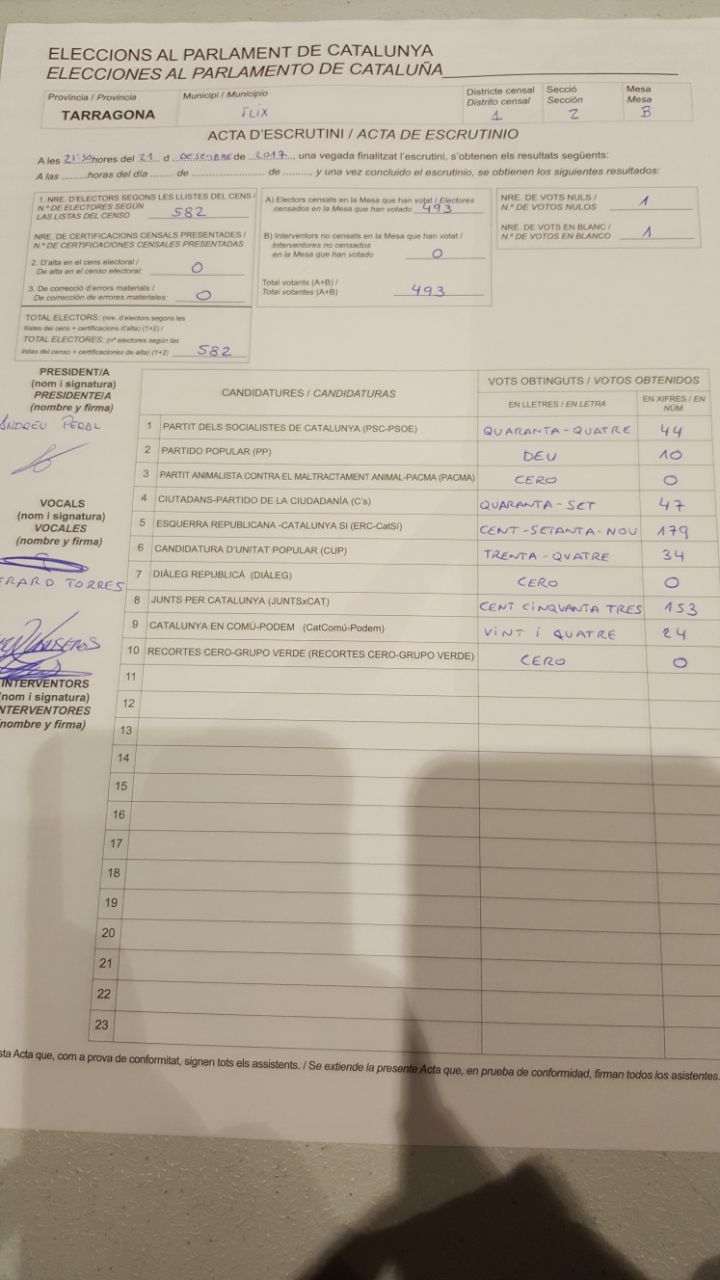 ELECCIONS AL PARLAMENT DE CATALUNYA
ELECCIONES AL PARLAMENTO DE CATALUÑA
Provincia / Provincia
TARRAGONA
Municipi / Municipio
FLIX
Districte censal
Distrito censal
1
Secció
Sección
2
Mesa
Mesa
B
ACTA D'ESCRUTINI / ACTA DE ESCRUTINIO
A les 21:30 hores del 21 d DESEMBRE de 2017, una vegada finalitzat l'escrutini, s'obtenen els resultats següents:
A las ........horas del día ....... de ........................ de ......... y una vez concluido el escrutinio, se obtienen los siguientes resultados:
1. NRE. D'ELECTORS SEGONS LES LLISTES DEL CENS /
N.º DE ELECTORES SEGÚN
LAS LISTAS DEL CENSO 582
NRE. DE CERTIFICACIONS CENSALS PRESENTADES /
N.º DE CERTIFICACIONES CENSALES PRESENTADAS
2. D'alta en el cens electoral /
De alta en el censo electoral: 0
3. De correcció d'errors materials /
De corrección de errores materiales: 0
TOTAL ELECTORS: (nre. d'electors segons les
llistes del cens + certificacions d'alta) (1+2) /
TOTAL ELECTORES: (nº electores según las
listas del censo + certificaciones de alta) (1+2) 582
A) Electors censats en la Mesa que han votat / Electores
censados en la Mesa que han votado 493
B) Interventors no censats en la Mesa que han votat /
Interventores no censados
en la Mesa que han votado 0
Total votants (A+B) /
Total votantes (A+B) 493
NRE. DE VOTS NULS /
N.º DE VOTOS NULOS 1
NRE. DE VOTS EN BLANC /
N.º DE VOTOS EN BLANCO 1
PRESIDENT/A
(nom i signatura)
PRESIDENTE/A
(nombre y firma)
ANDREU PERAL
VOCALS
(nom i signatura)
VOCALES
(nombre y firma)
ERARD TORRES
INTERVENTORS
(nom i signatura)
INTERVENTORES
(nombre y firma)
CANDIDATURES / CANDIDATURAS
VOTS OBTINGUTS / VOTOS OBTENIDOS
EN LLETRES / EN LETRA
EN XIFRES / EN
NÚM
1 PARTIT DELS SOCIALISTES DE CATALUNYA (PSC-PSOE) QUARANTA-QUATRE 44
2 PARTIDO POPULAR (PP) DEU 10
3 PARTIT ANIMALISTA CONTRA EL MALTRACTAMENT ANIMAL-PACMA (PACMA) CERO 0
4 CIUTADANS-PARTIDO DE LA CIUDADANÍA (C's) QUARANTA-SET 47
5 ESQUERRA REPUBLICANA -CATALUNYA SI (ERC-CatSí) CENT-SETANTA-NOU 179
6 CANDIDATURA D'UNITAT POPULAR (CUP) TRENTA-QUATRE 34
7 DIÀLEG REPUBLICÀ (DIÀLEG) CERO 0
8 JUNTS PER CATALUNYA (JUNTSxCAT) CENT CINQUANTA TRES 153
9 CATALUNYA EN COMÚ-PODEM (CatComú-Podem) VINT I QUATRE 24
10 RECORTES CERO-GRUPO VERDE (RECORTES CERO-GRUPO VERDE) CERO 0
11
12
13
14
15
16
17
18
19
20
21
22
23
sta Acta que, com a prova de conformitat, signen tots els assistents. / Se extiende la presente Acta que, en prueba de conformidad, firman todos los asistentes.